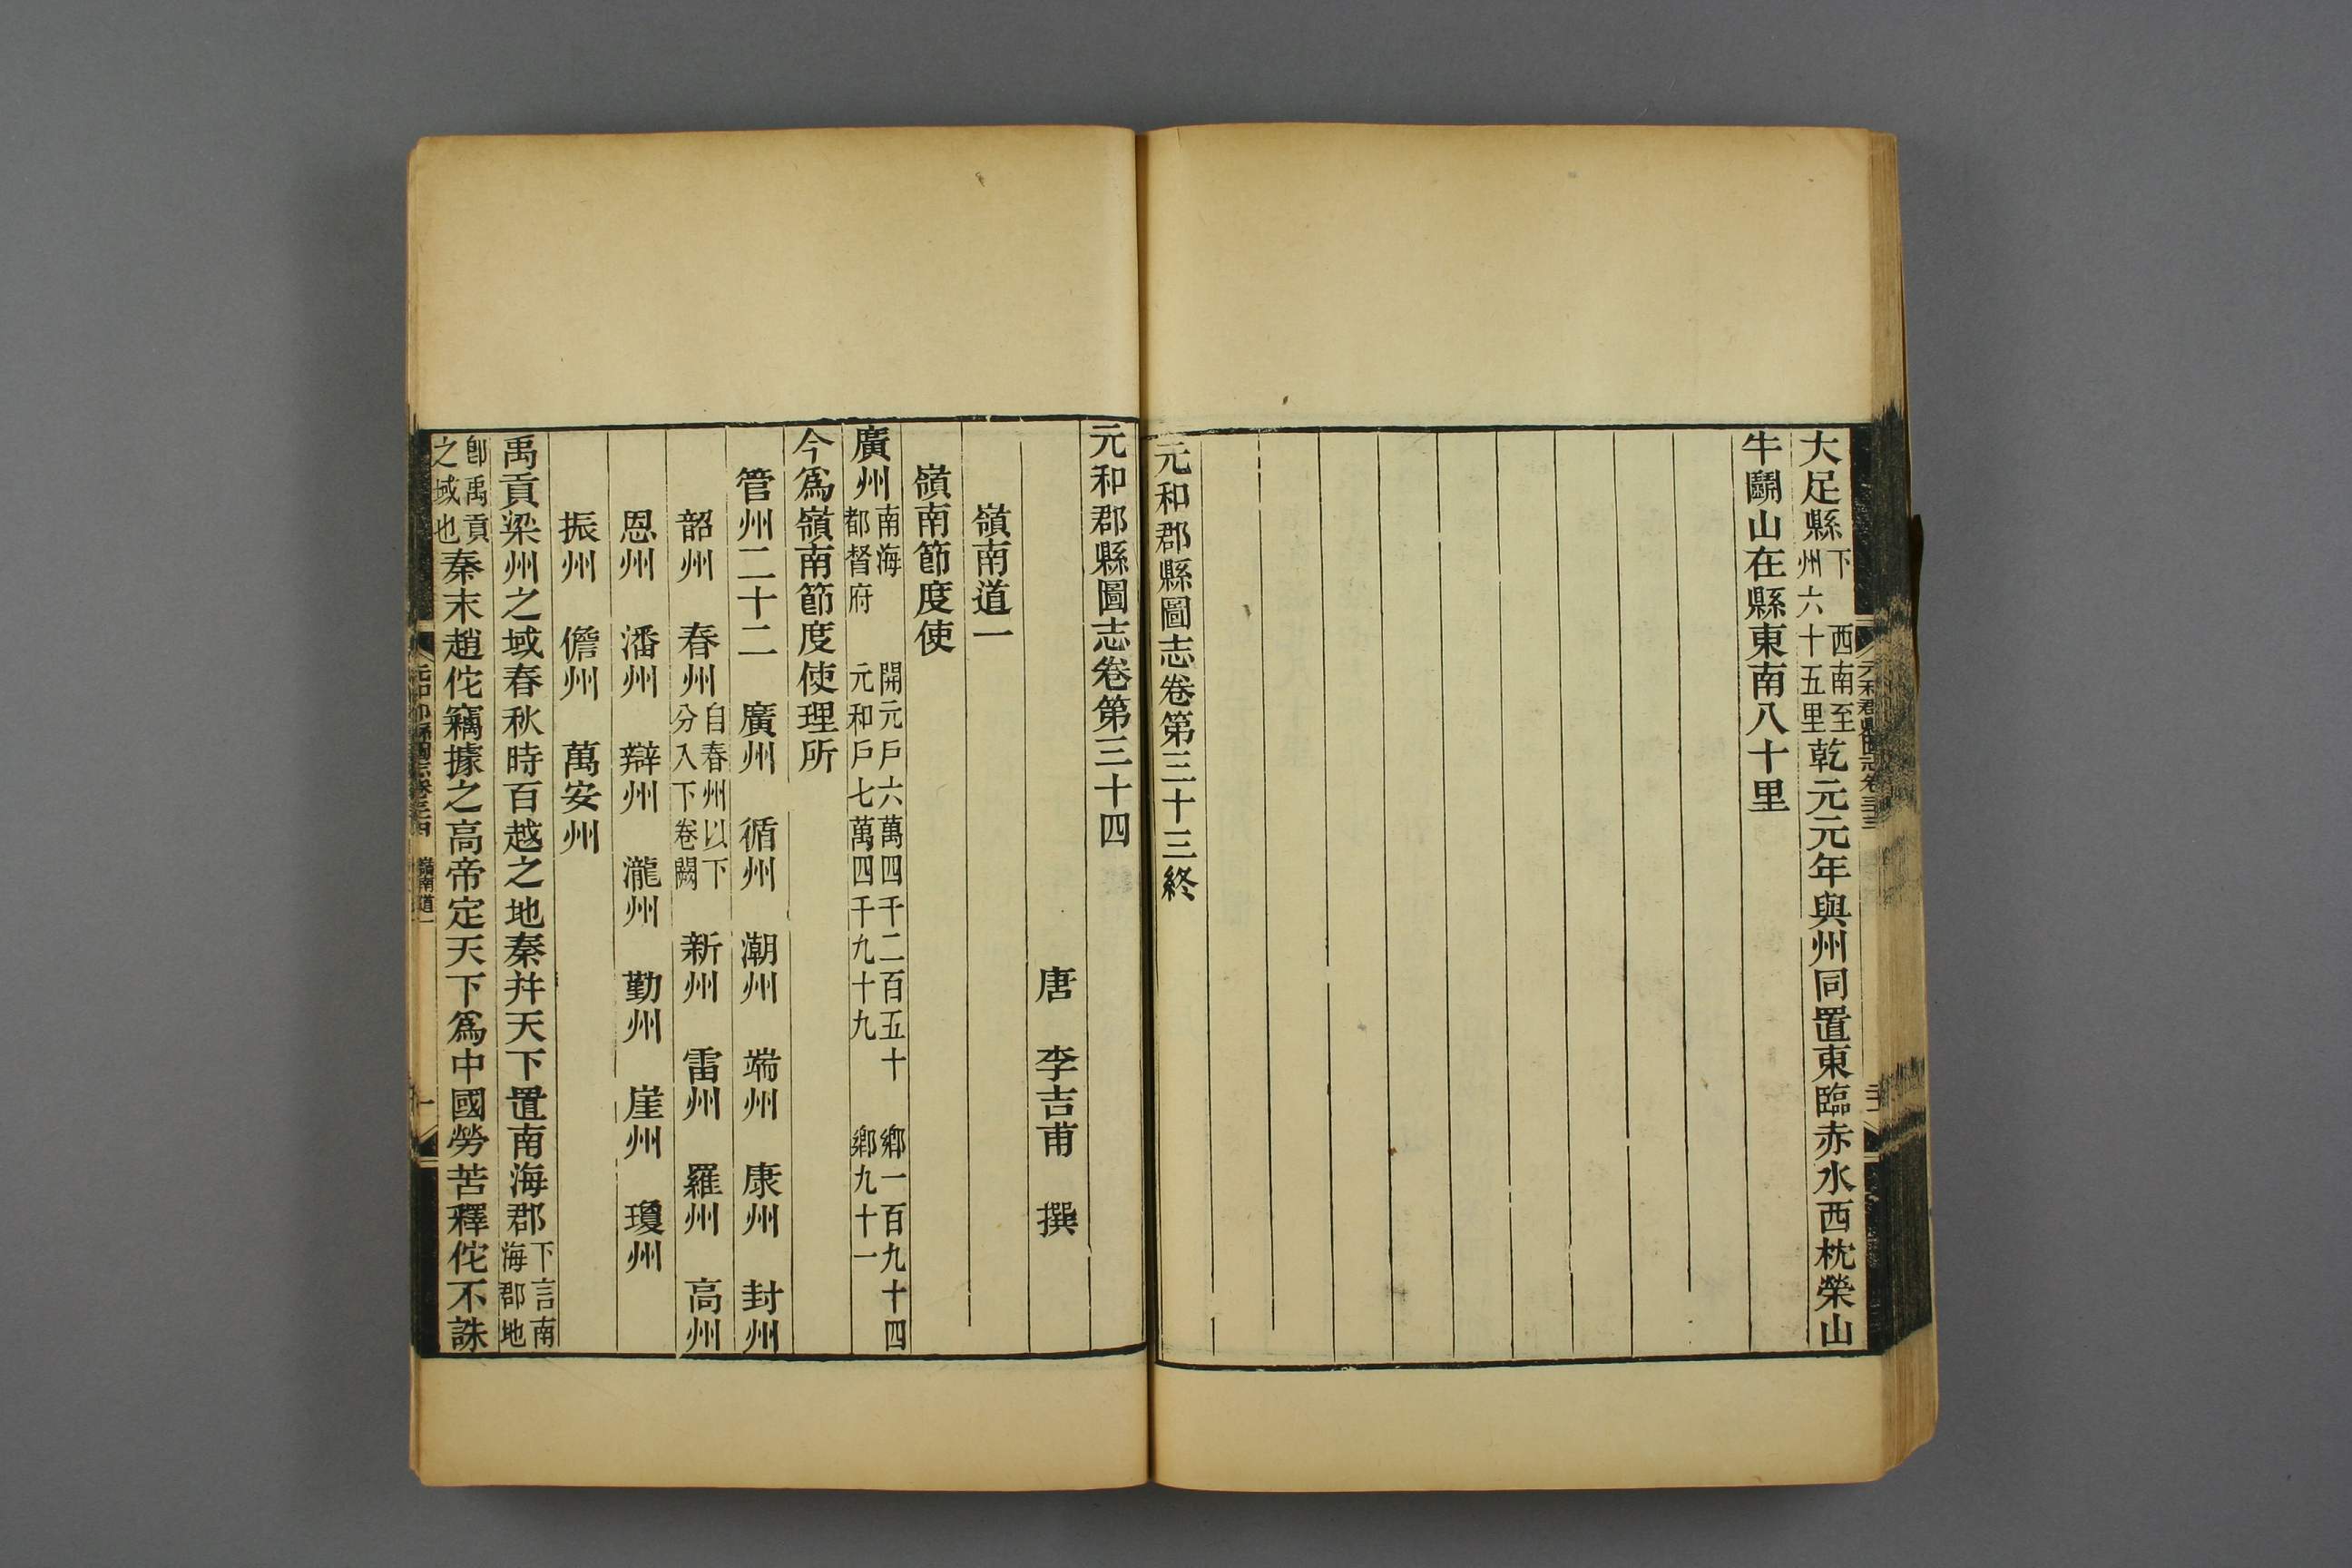 大足縣下 西南至州六十五里乾元元年與州同置東臨赤水西枕榮山
牛鬭山在縣東南八十里
元和郡縣圖志卷第三十三終
元和郡縣圖志卷第三十四
唐 李吉甫 撰
嶺南道一
嶺南節度使
廣州南海都督府 開元戶六萬四千二百五十 鄉一百九十四 元和戶七萬四千九十九 鄉九十一
今爲嶺南節度使理所
管州二十二 廣州 循州 潮州 端州 康州 封州
韶州 春州自春州以下分入下卷闕 新州 雷州 羅州 高州
恩州 潘州 辯州 瀧州 勤州 崖州 瓊州
振州 儋州 萬安州
禹貢梁州之域春秋時百越之地秦幷天下置南海郡下言南海郡地
卽禹貢之域也秦末趙佗竊據之高帝定天下爲中國勞苦釋佗不誅
嶺南道一
一